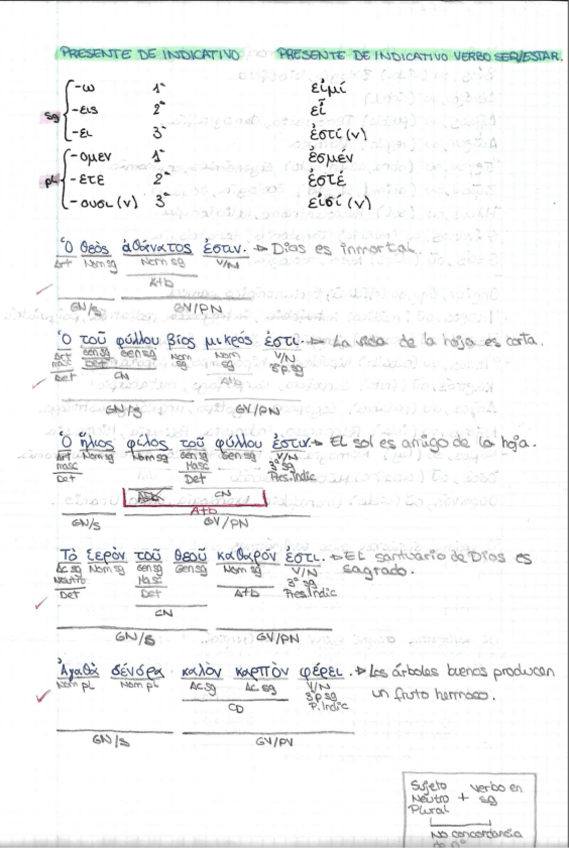 PRESENTE DE INDICATIVO PRESENTE DE INDICATIVO VERBO SER/ESTAR.
-ω 1ª εἰμί
Sg -εις 2ª εἶ
-ει 3ª ἐστί (ν)
-ομεν 1ª ἐσμέν
pl -ετε 2ª ἐστέ
-ουσι (ν) 3ª εἰσί (ν)
Ὁ θεὸς ἀθάνατος ἐστιν. → Dios es inmortal.
Art Nom sg Nom sg V/N
Atb
GN/S GV/PN
Ὁ τοῦ φύλλου βίος μικρός ἐστι. → La vida de la hoja es corta.
Art Gen sg Gen sg Nom Nom V/N
masc Det sg sg 3ªp sg
Det CN Atb
GN/S GV/PN
Ὁ ἥλιος φίλος τοῦ φύλλου ἐστιν → El sol es amigo de la hoja.
Art Nom sg Nom sg Gen sg Gen sg V/N
masc Masc 3ª sg
Det Det Pres. Indic
CN
Atb
GN/S GV/PN
Τὸ ἱερὸν τοῦ θεοῦ καθαρόν ἐστι. → El santuario de Dios es
sagrado.
Ac sg Nom sg Gen sg Gen sg Nom sg V/N
Neutro Masc 3ª sg
Det Det Atb Pres. Indic
CN
GN/S GV/PN
Ἀγαθὰ δένδρα καλὸν καρπὸν φέρει. → Los árboles buenos producen
un fruto hermoso.
Nom pl Nom pl Ac sg Ac sg V/N
3ªp sg
CD P. Indic
GN/S GV/PV
Sujeto verbo en
Neutro + sg
Plural
No concordancia
de nº